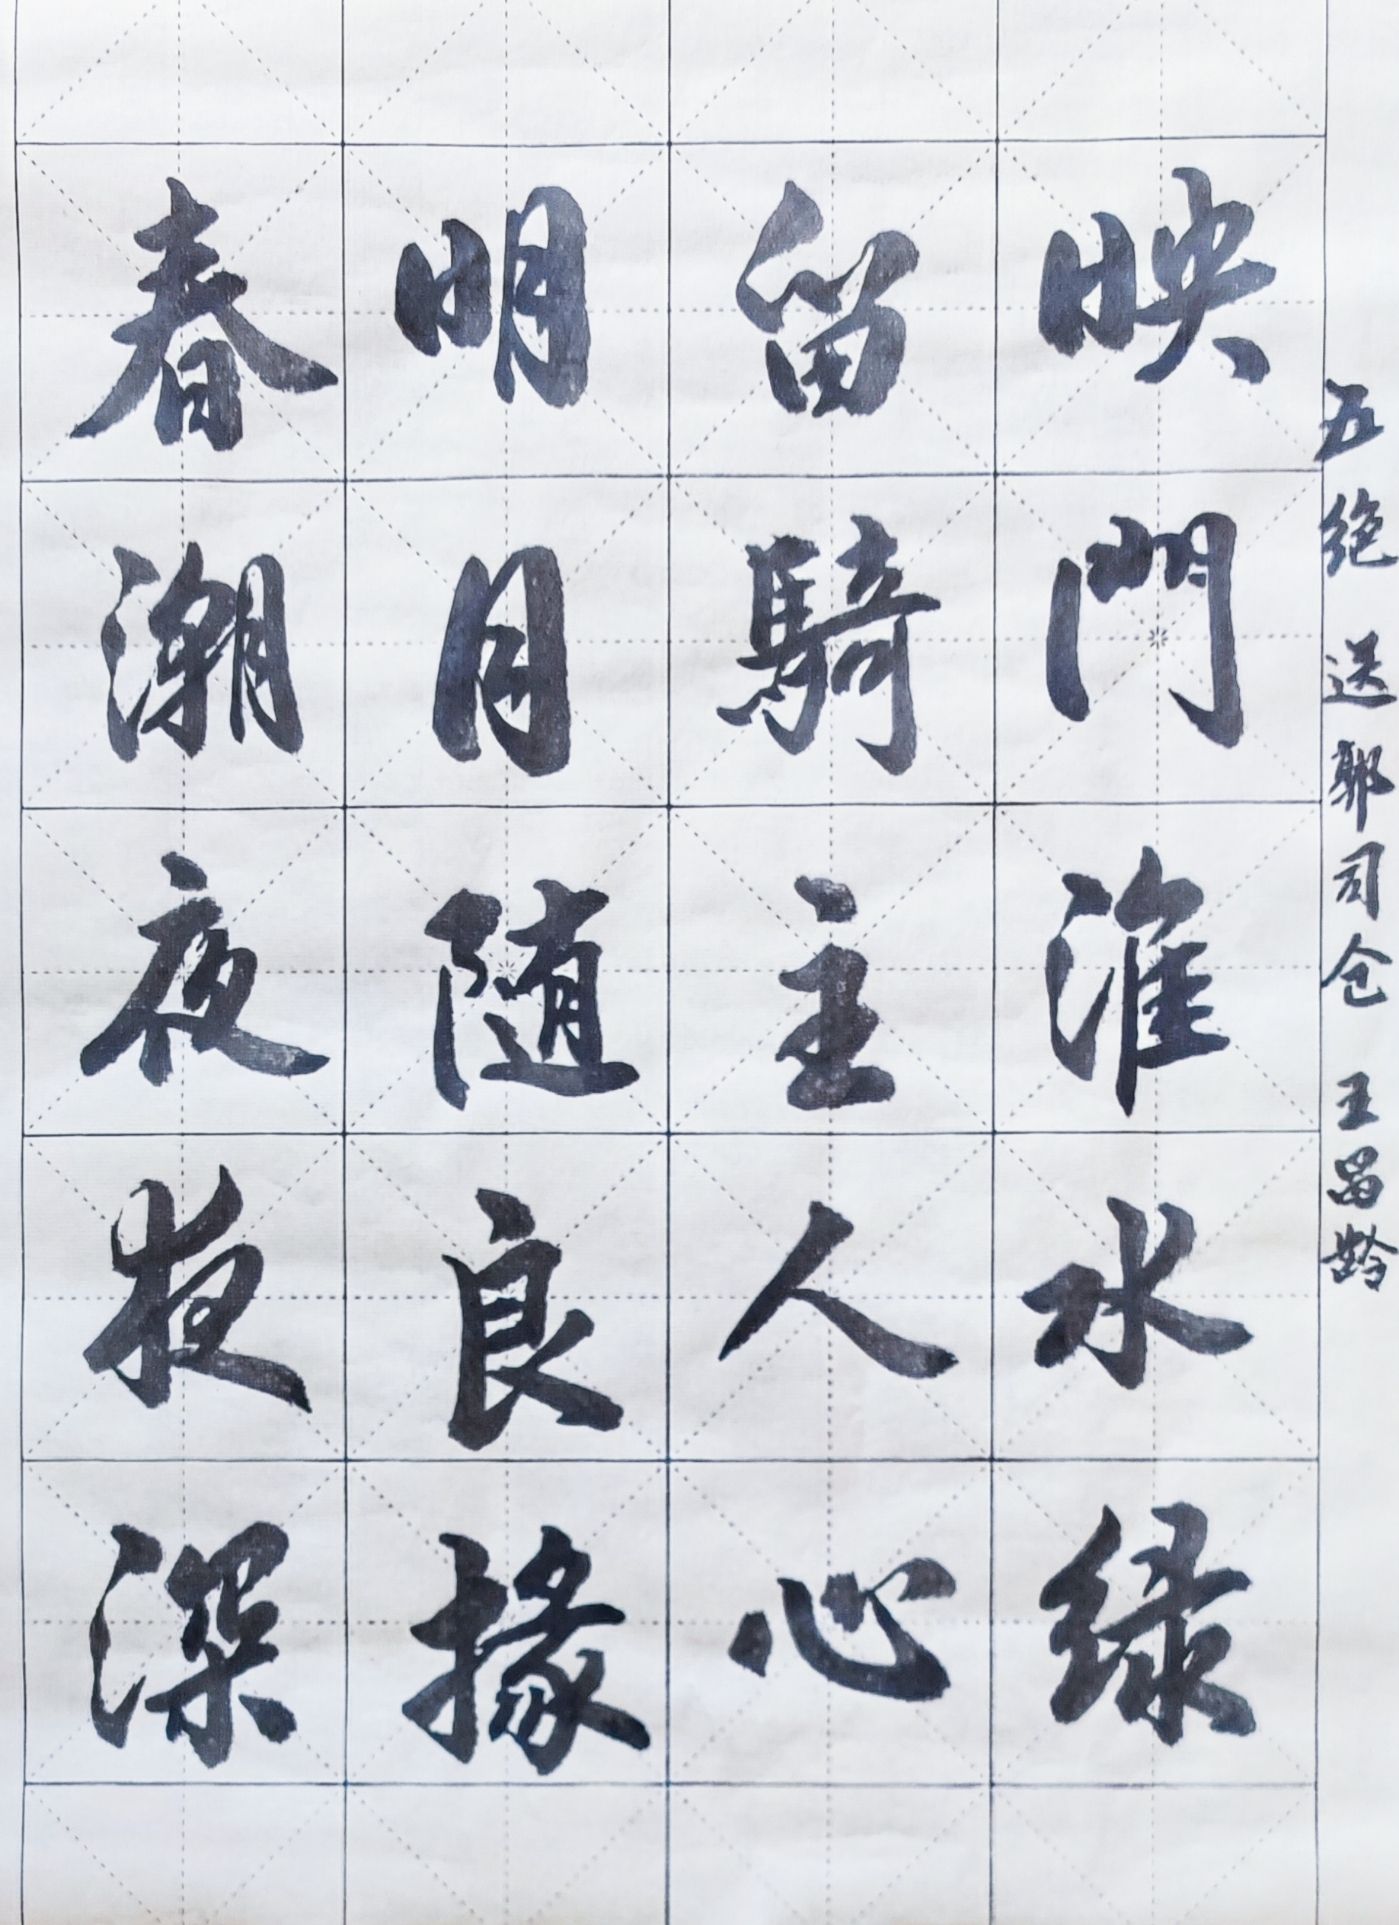 五绝 送郭司仓 王昌龄
映門淮水绿
留騎主人心
明月随良掾
春潮夜夜深